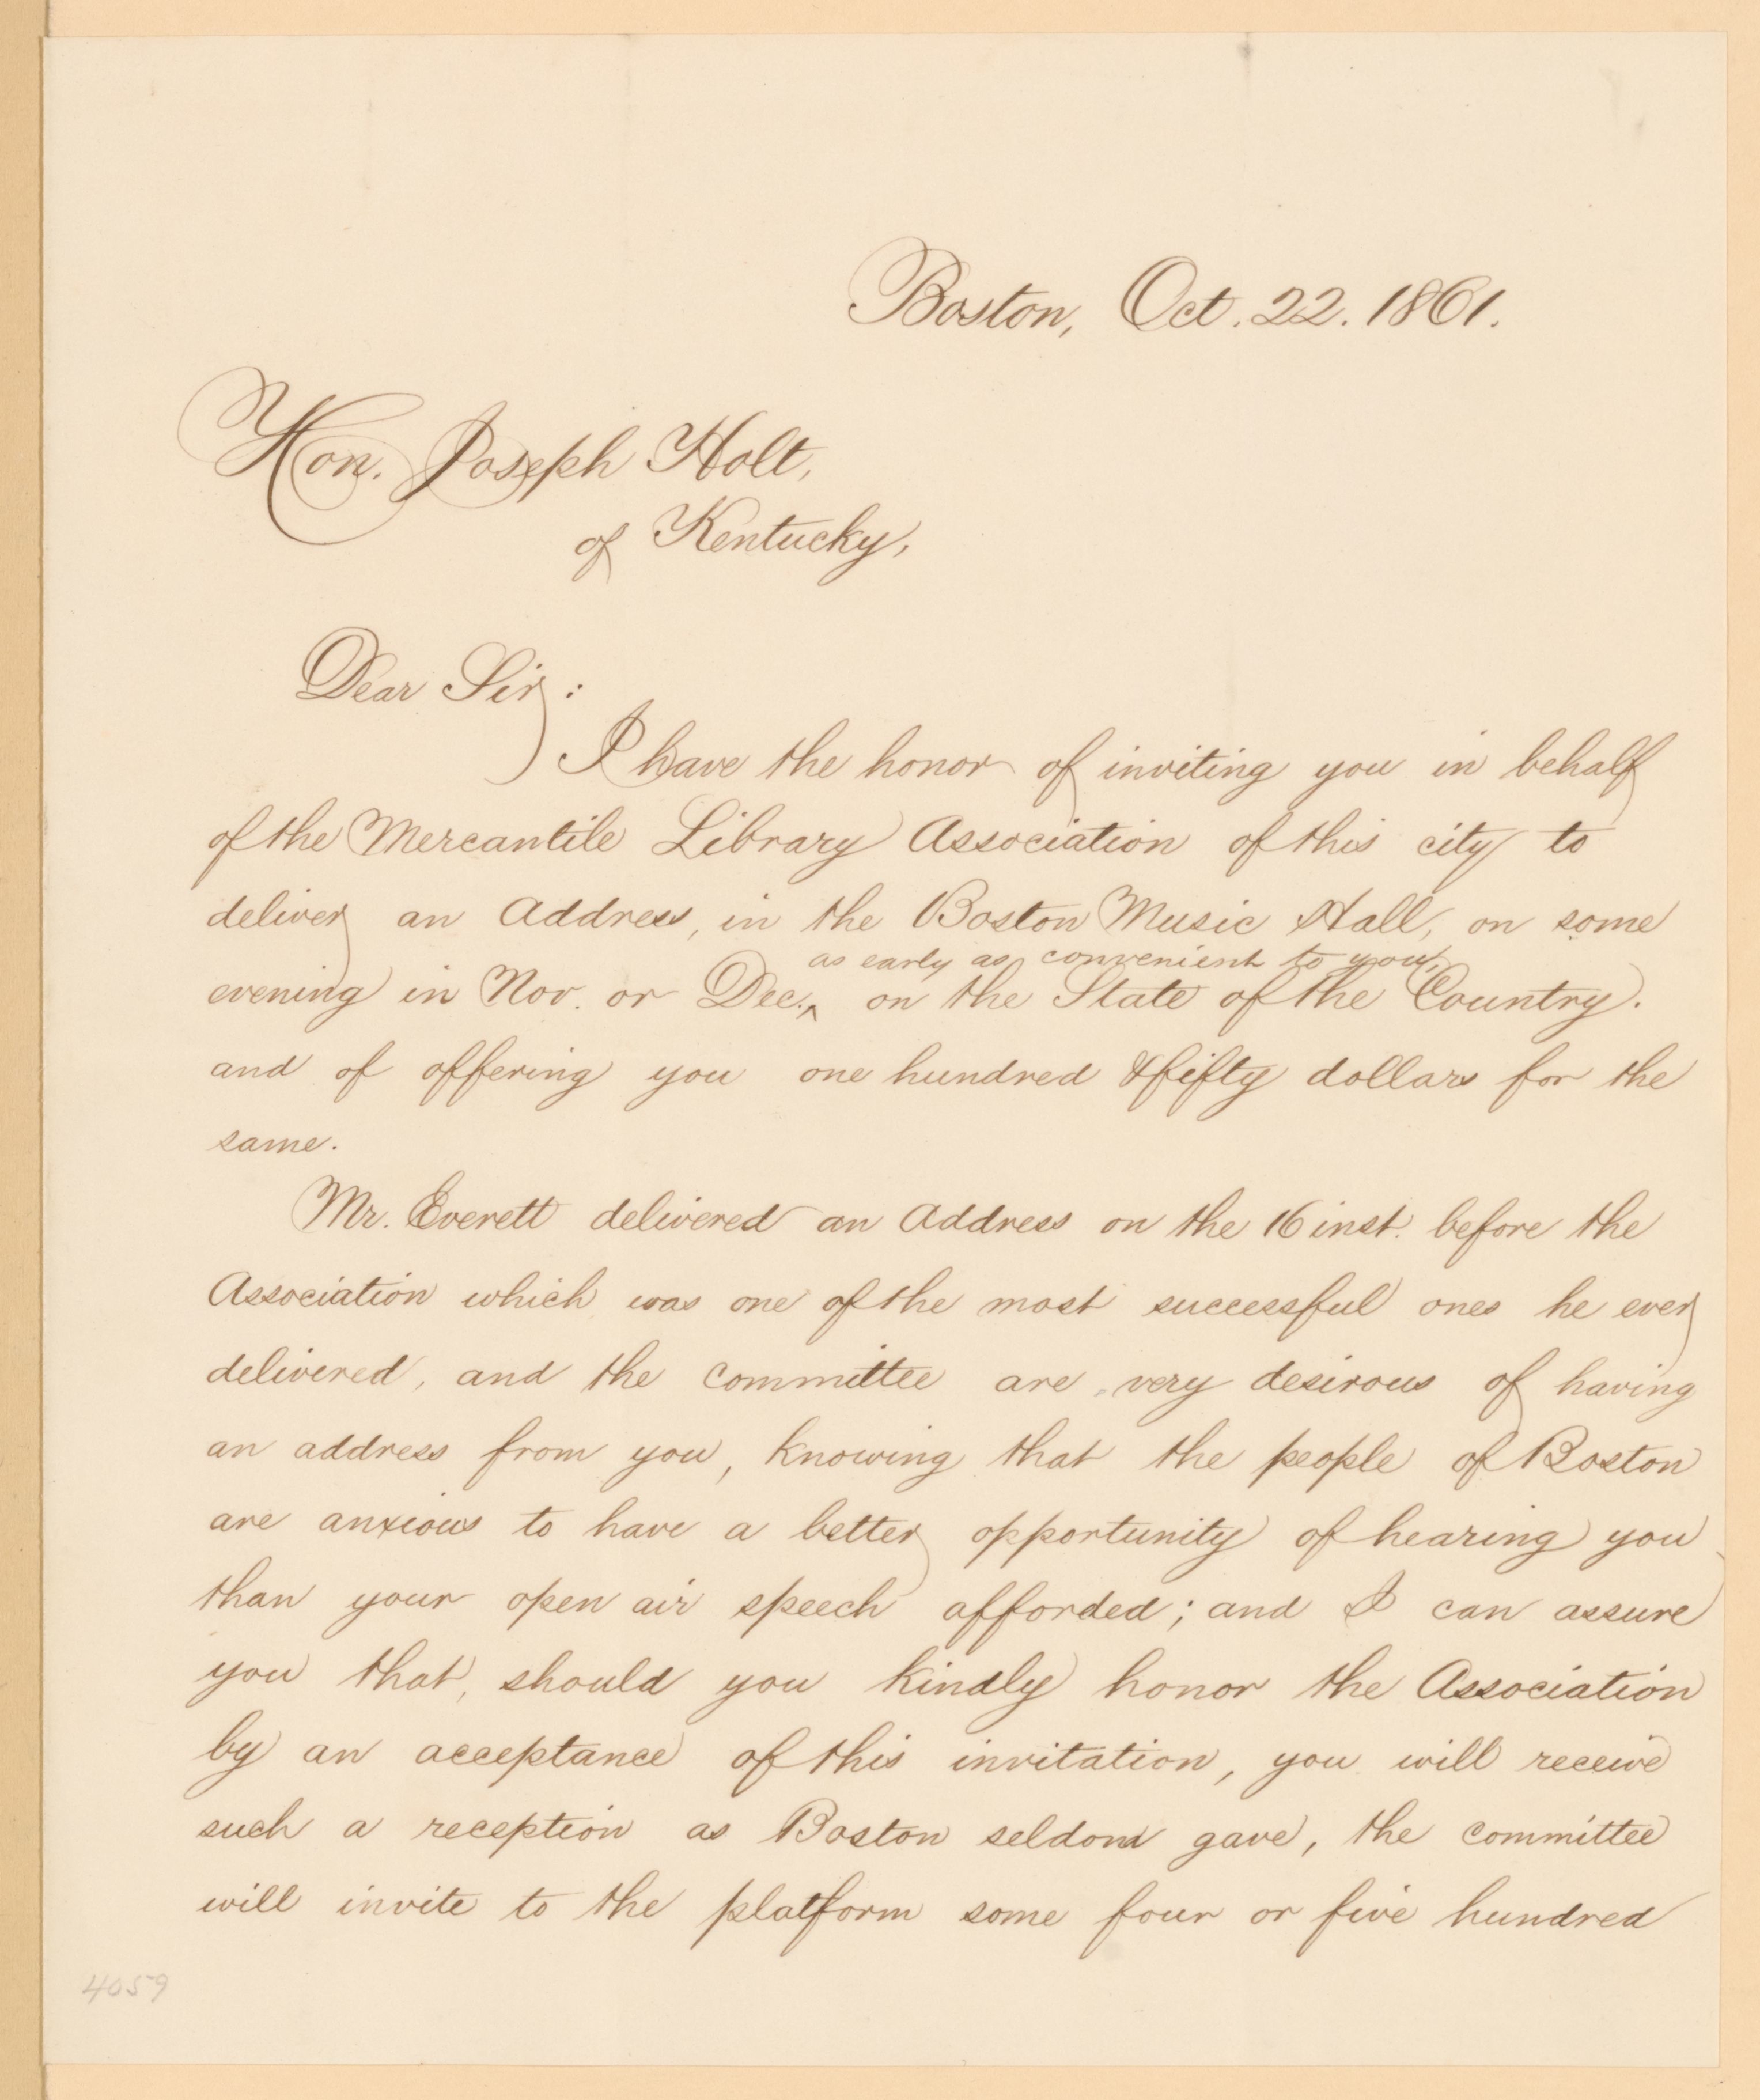 Boston, Oct. 22. 1861.
Hon. Joseph Holt,
of Kentucky,
Dear Sir:
I have the honor of inviting you in behalf
of the Mercantile Library Association of this city to
deliver an Address, in the Boston Music Hall, on some
as early as convenient to you,
evening in Nov. or Dec.‸ on the State of the Country.
and of offering you one hundred & fifty dollars for the
same.
Mr. Everett delivered an Address on the 16 inst. before the
Association which was one of the most successful ones he ever
delivered, and the committee are very desirous of having
an address from you, knowing that the people of Boston
are anxious to have a better opportunity of hearing you
than your open air speech afforded; and I can assure
you that, should you kindly honor the Association
by an acceptance of this invitation, you will receive
such a reception as Boston seldom gave, the committee
will invite to the platform some four or five hundred
4059